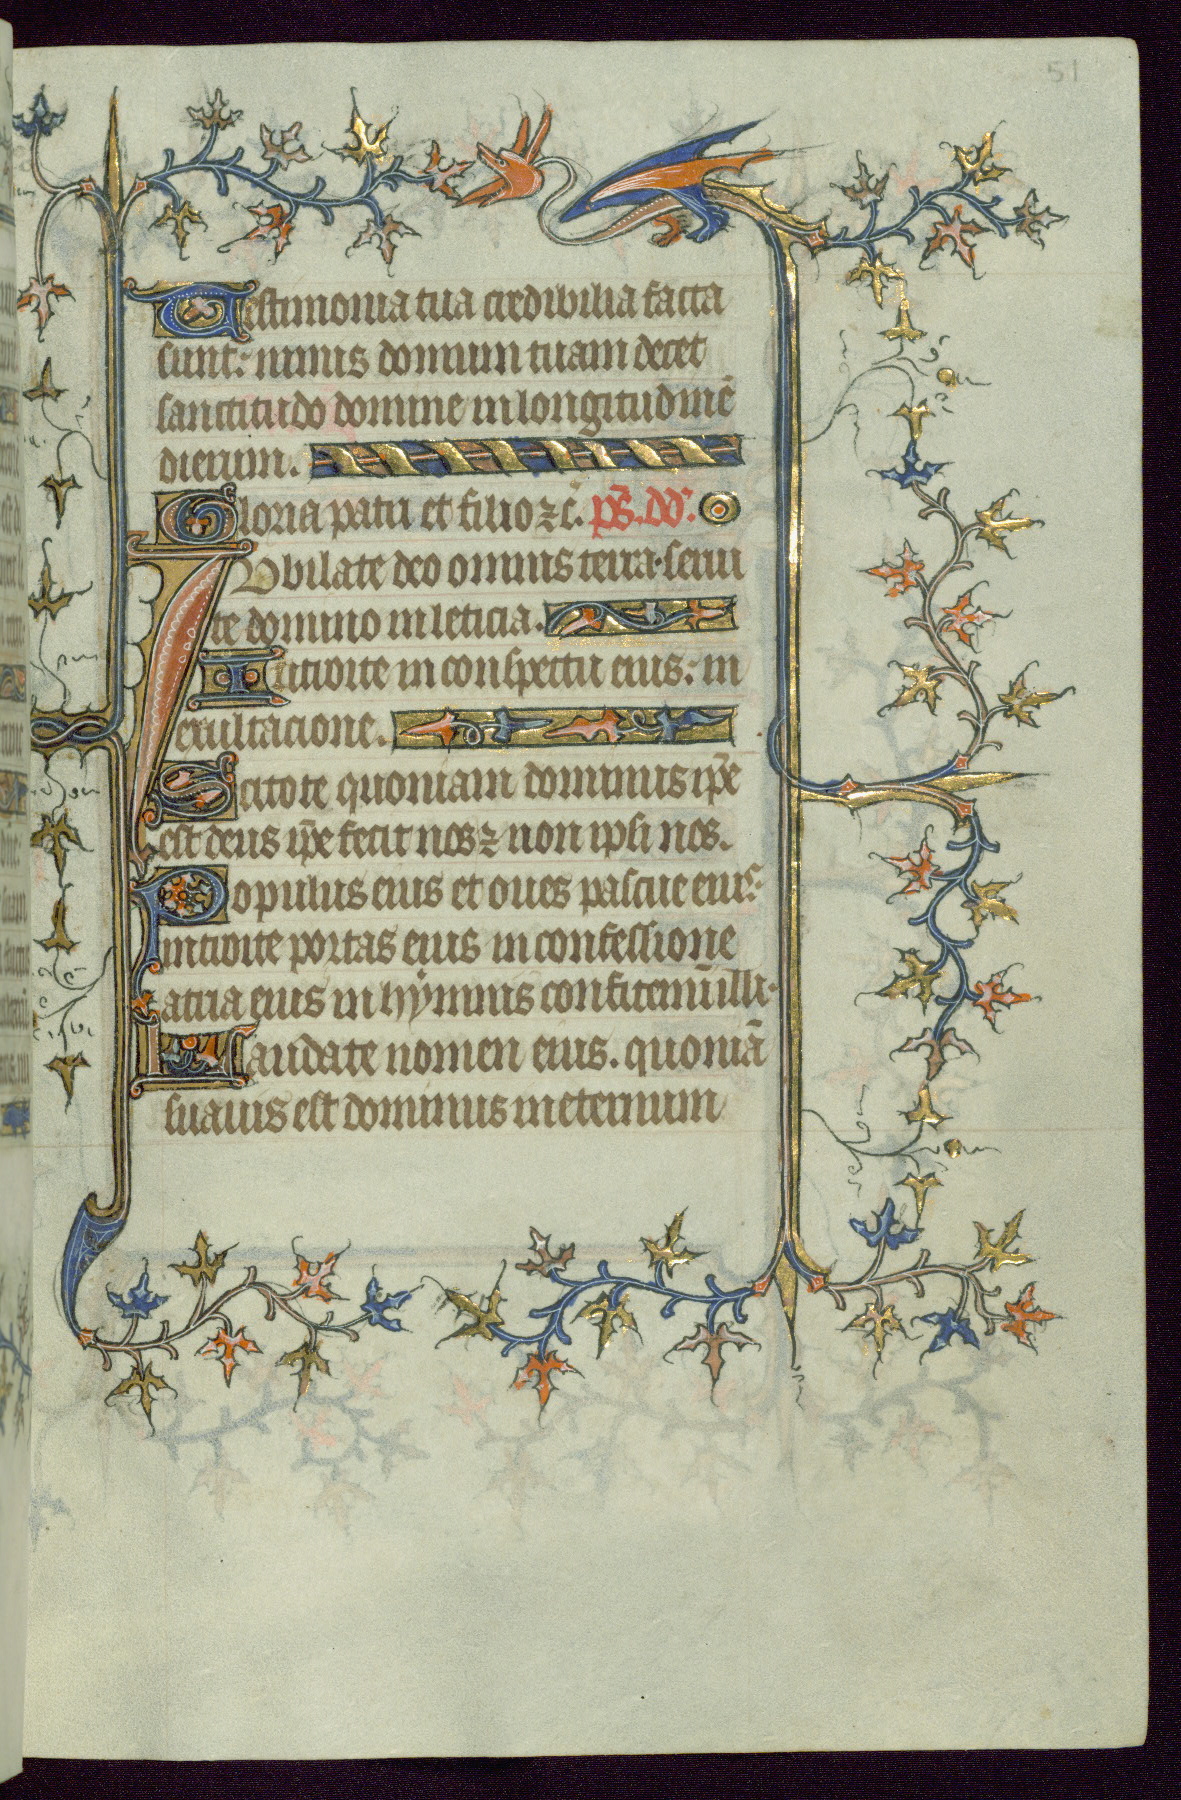 51
Testimonia tua credibilia facta
sunt: nimis domum tuam decet
sanctitudo domine in longitudinē
dierum.
Gloria patri et filio ⁊c̄. ps̄. dd̄.
Iubilate deo omnis terra·serui
te domino in leticia.
Introite in conspectu eius: in
exultacione.
Scitote quoniam dominus ip̄e
est deus ip̄e fecit nos ⁊ non ipsi nos.
Populus eius et oues pascue eius:
introite portas eius in confessione
atria eius in hẏmnis confitemīi illi·
Laudate nomen eius. quoniā
suauis est dominus in eternum